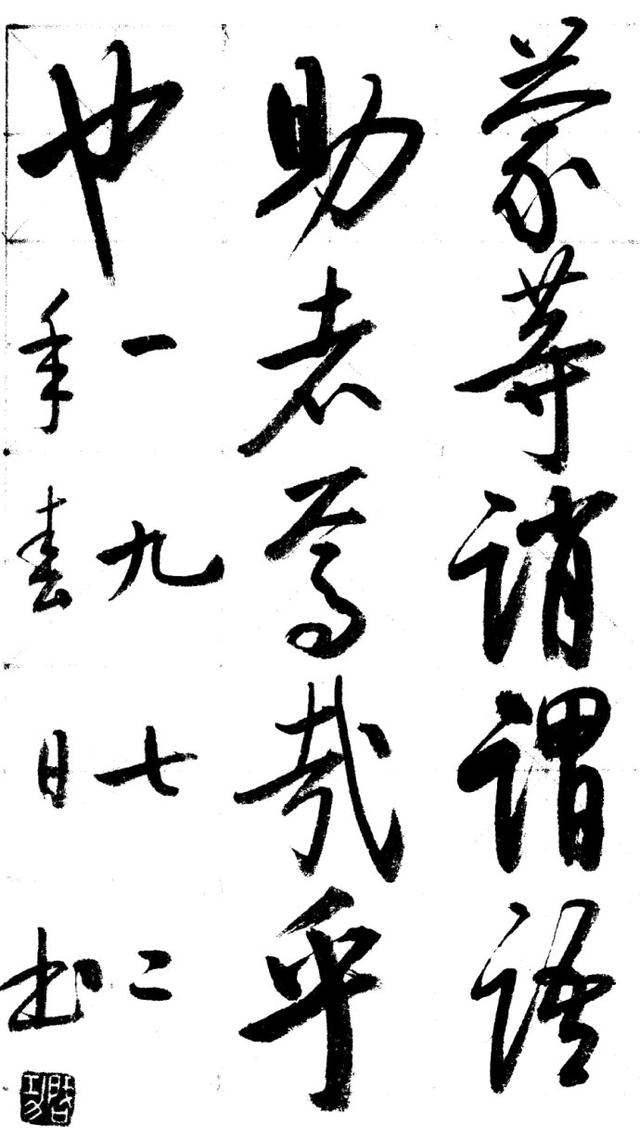 蒙等誚謂語
助者焉哉乎
也
一九七二
年春日書
啟功